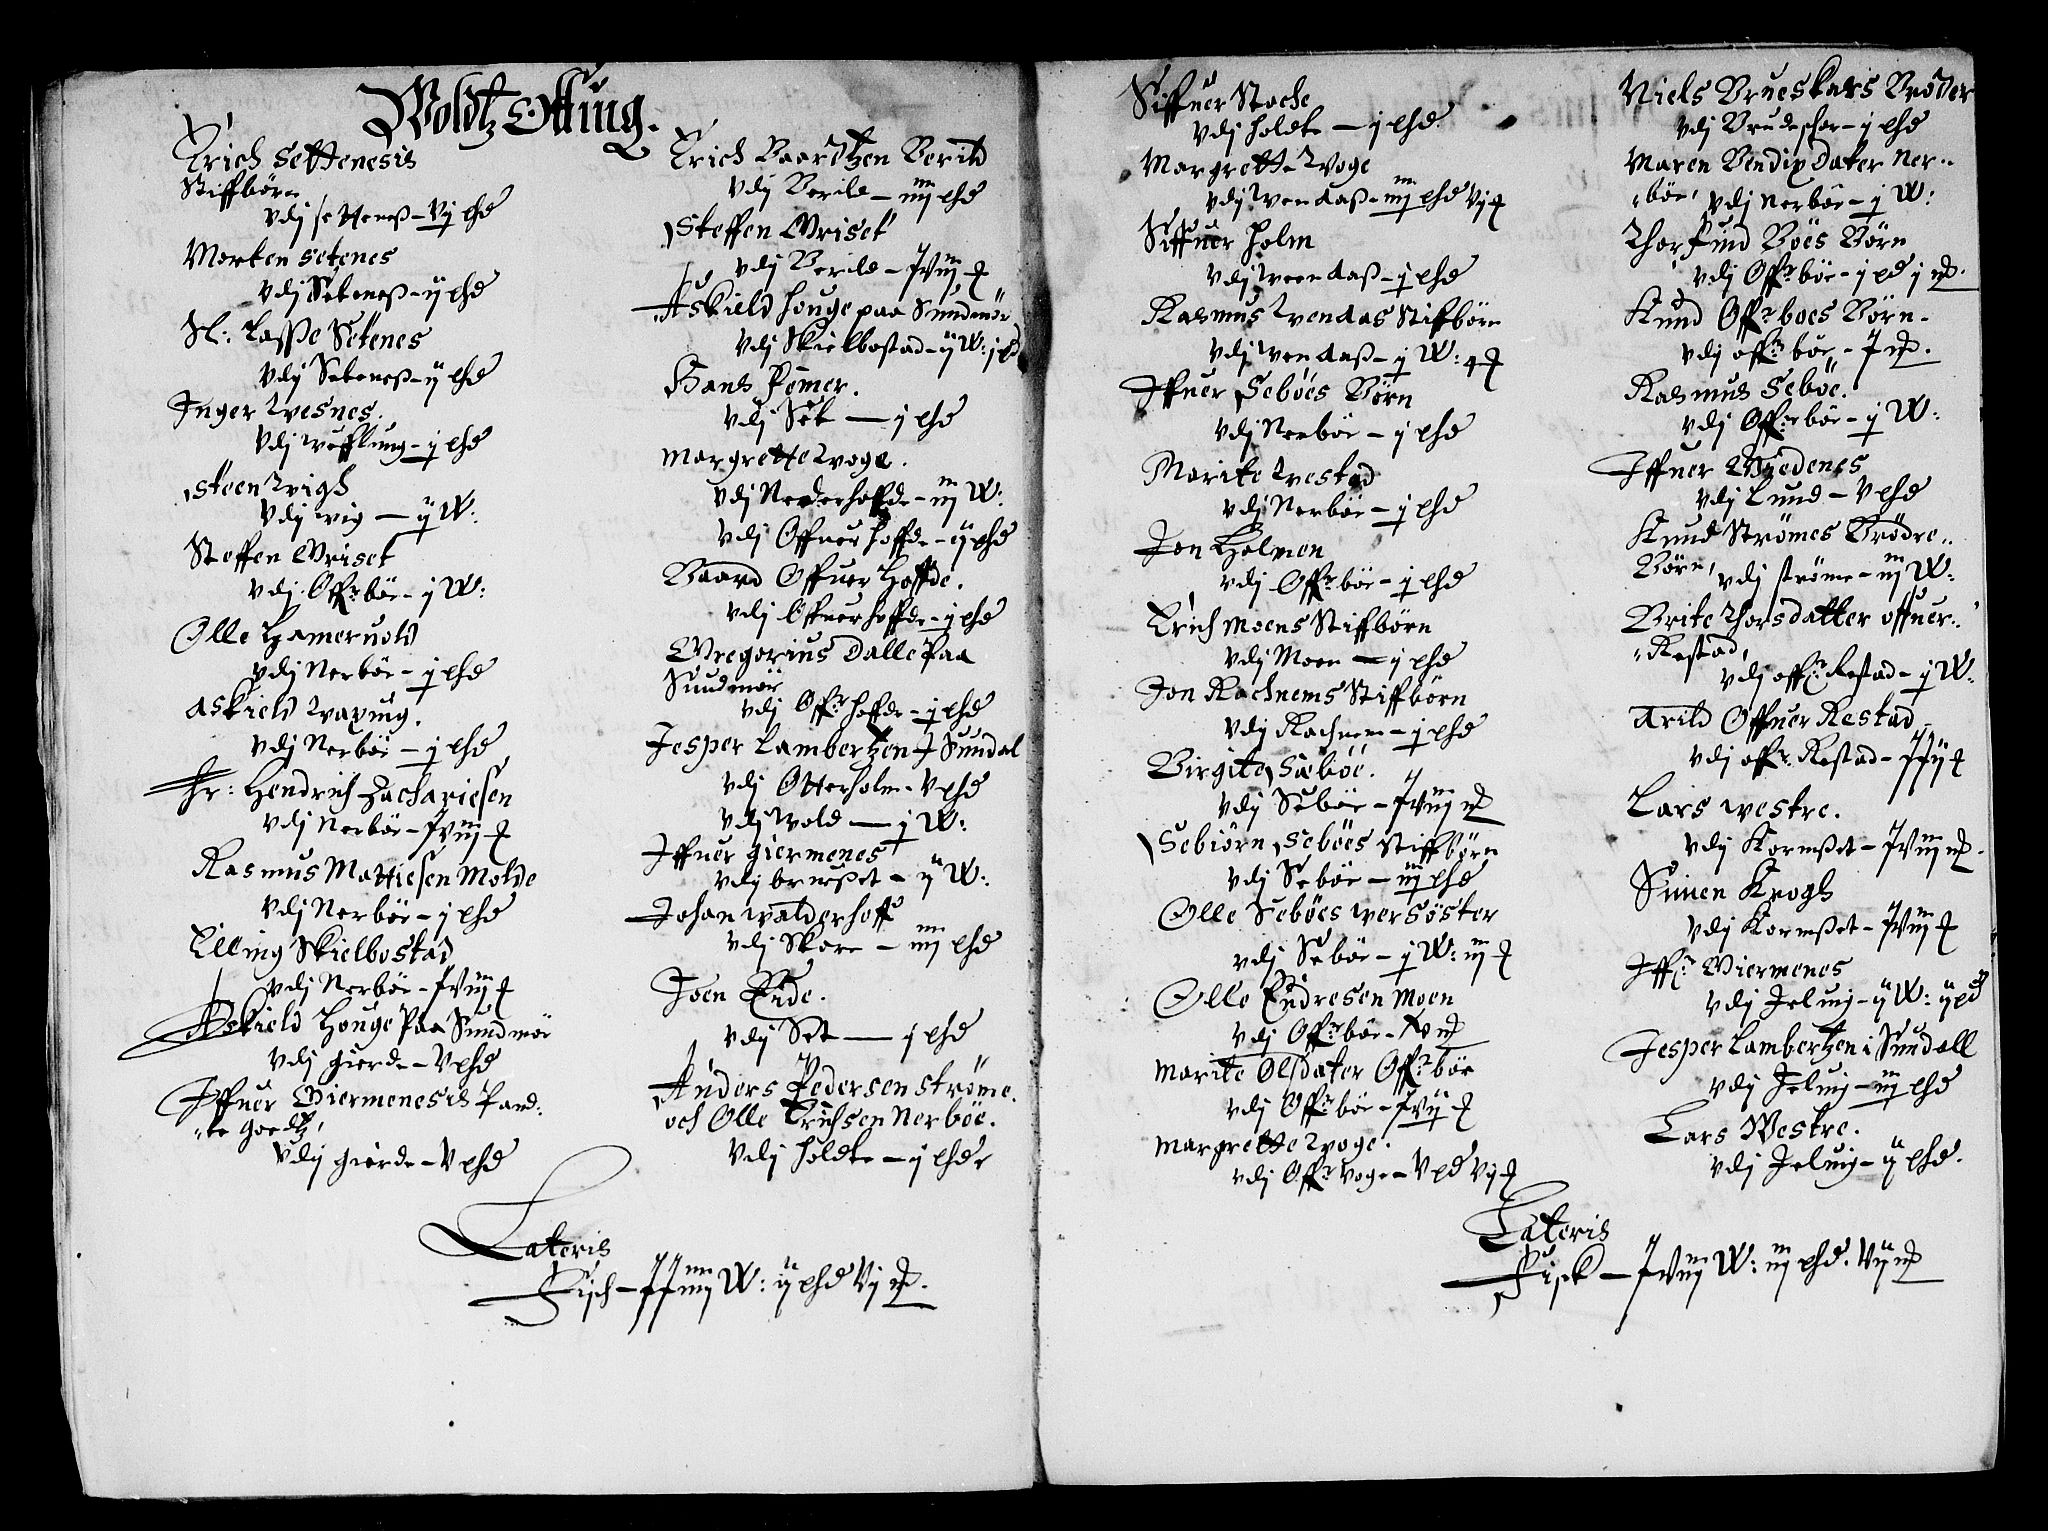 Woldtz Otting.
Erich Settenesis
Stiffbörn
vdj Setteneß – vj phd
Morten Setenes
vdj Seteneß – ij phd
Sl: Lasse Setenes
vdj Seteneß – ij phd
Inger Tresnes.
vdj – j phd
Steen Wigh
vdj wig – ij W:
Steffen Griset
vdj Offr bör – j W:
Olle Hameruold
vdj Nerbör – j phd
Askield
vdj Nerbör – j phd
Hr: Hendrich Zachariesen
vdj Nerbör – Jviij
Rasmus Mattiesen Molde
vdj Nerbör – j phd
Elling Skielbostad
vdj Nerbör – Jviij
Askield Houge Paa Sundmör
vdj gierde – v phd
Iffuer Giermenesis Pand:
te goedtz,
vdj gierde – v phd
Erich Baardtzen Berild
vdj Berild – iiij phd
Steffen Griset
vdj Berild – Jviij
Askield Houge paa Sundmör
vdj Skielbostad – ij W: j pd
Hans Pemer.
vdj Set – j phd
Margrette Woge.
vdj Nederhoffde – iij W:
vdj Offuer hoffde – ij phd
Baard Offuer Hoffde.
vdj Offuer hoffde – j phd
Gregorius Dalle Paa
Sundmör
vdj Offr hoffde – j phd
Jesper Lambertzen J Sundal
vdj Otterholm – v phd
vdj Wold – j W:
Iffuer giermenes
vdj bruset – ij W:
Johan Walderhoff
vdj Skore – iiij phd
Joen Eide.
vdj Set – j phd
Anders Pedersen Ströme.
och Olle Erichsen Nerböe.
vdj holdte – j phd
Lateris
Fisch – JJiiij W: ij phd vj
Siffuer Stocke
vdj holdte – j phd
Margrette Woge
vdj Wendaaß – iiij phd vj
Siffuer Holm
vdj Wendaaß – j phd
Rasmus Wendaas Stiffbörn
vdj Wendaaß – j W: 4
Iffuer Seböes Börn
vdj Nerbör – j phd
Marite Westad
vdj Nerbör – j phd
Jon Holmen
vdj Offr bör – j phd
Erich Moens Stiffbörn
vdj Moen – j phd
Jon Rachnems Stiffbörn
vdj Rachnem – j phd
Birgite Sæböe.
vdj Sebör – Jviij
Sebiörn Seböes Stiffbörn
vdj Sebör – iij phd
Olle Seböes Wersöster
vdj Sebör – j W: iij
Olle Endresen Moen
vdj Offr bör –
Marite Olsdater Offr bör
vdj Offr bör – Jvij
Margrette Woge.
vdj Offr Woge – v pd vj
Niels Brueskars Bröder
vdj Brudescher – j phd
Maren Bendix Dater Ner..
bör, vdj Nerbör – j W:
Thorfind Böes Börn
vdj Offr bör – j pd j
Knud Offr boes Börn.
vdj offr bör – J
Rasmus Seböe.
vdj Offr bör – j W:
Iffuer Myedenes
vdj Lund – v phd
Knud Strömes Brödre..
Börn, vdj ströme – iij W:
Brite Thorsdatter offuer..
Restad,
vdj offr Restad – j W:
Arild Offuer Restad
vdj offr Restad – JJij
Lars Westre.
vdj Kormset – Jviij
Simen Krogh
vdj Kormset – Jviij
Iffr Giermenes
vdj Jeluig – ij W: ij pd
Jesper Lambertzen i Sundall
vdj Jeluig – iij phd
Lars Westre.
vdj Jeluig – ij phd.
Lateris
Fisk – Jviij W: iij phd. vij